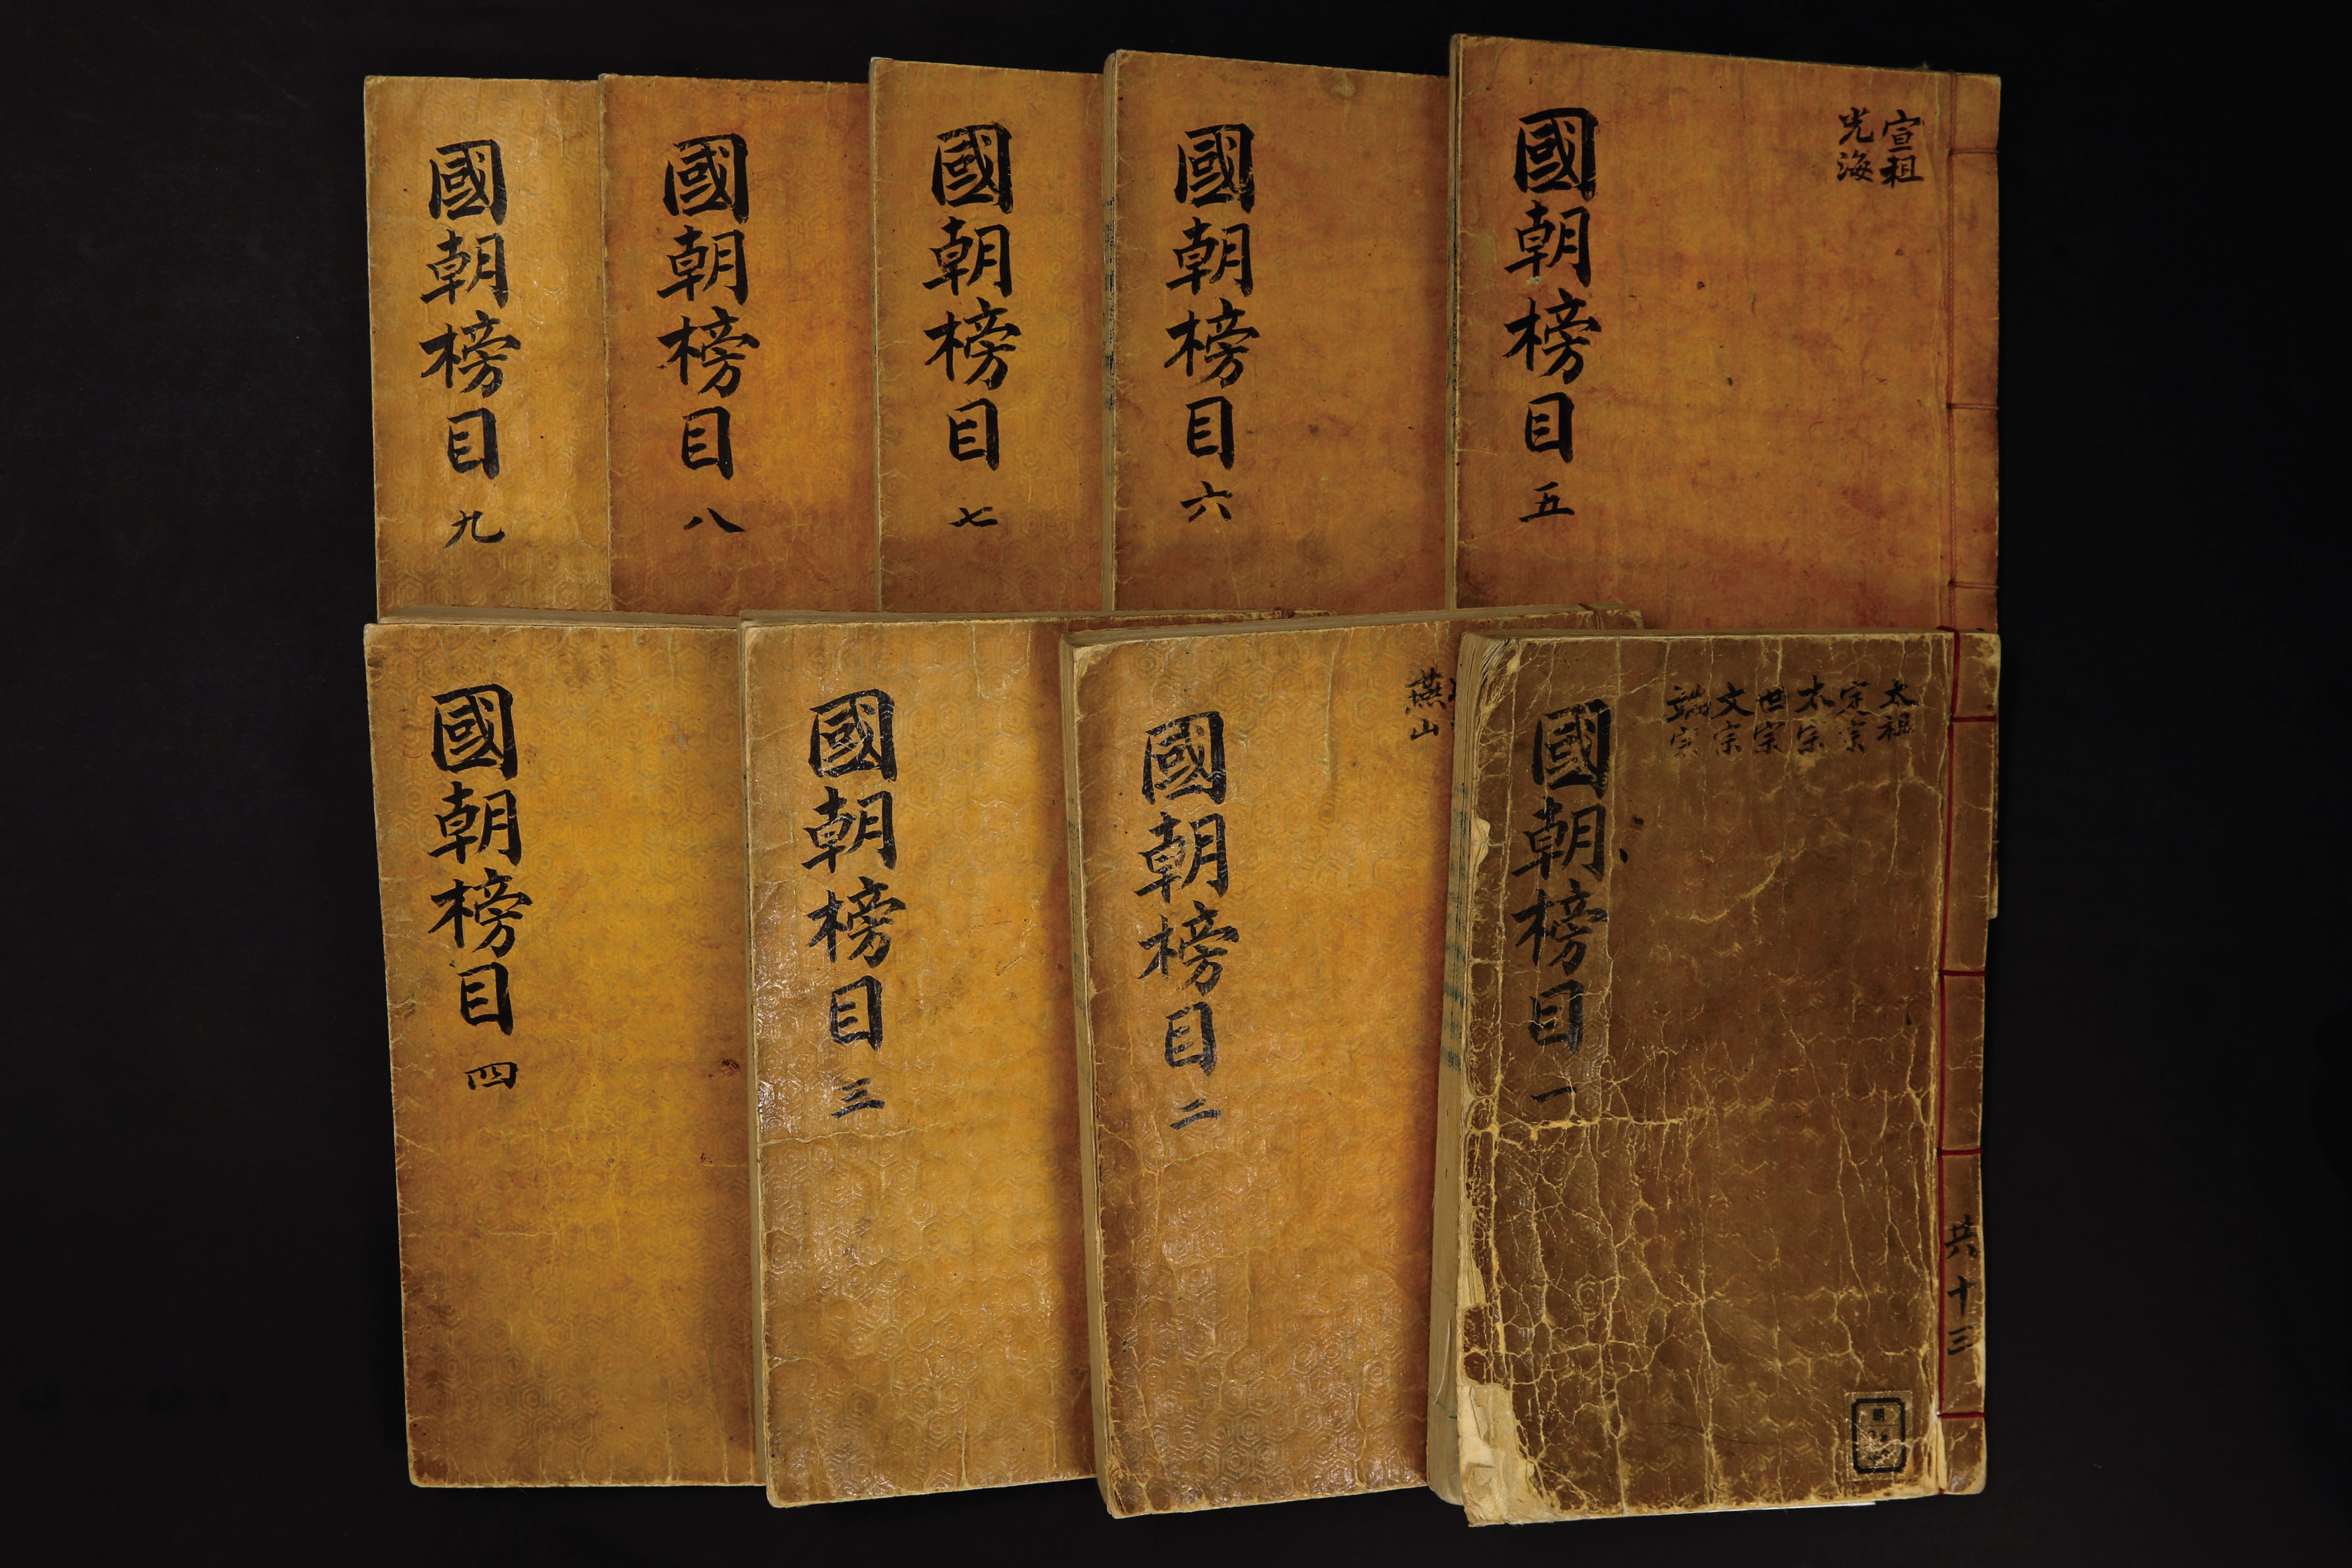 國朝榜目 九
國朝榜目 八
國朝榜目 七
國朝榜目 六
宣祖
光海
國朝榜目 五
國朝榜目 四
國朝榜目 三
燕山
國朝榜目 二
太祖
定宗
太宗
世宗
文宗
端宗
國朝榜目 一
共十三